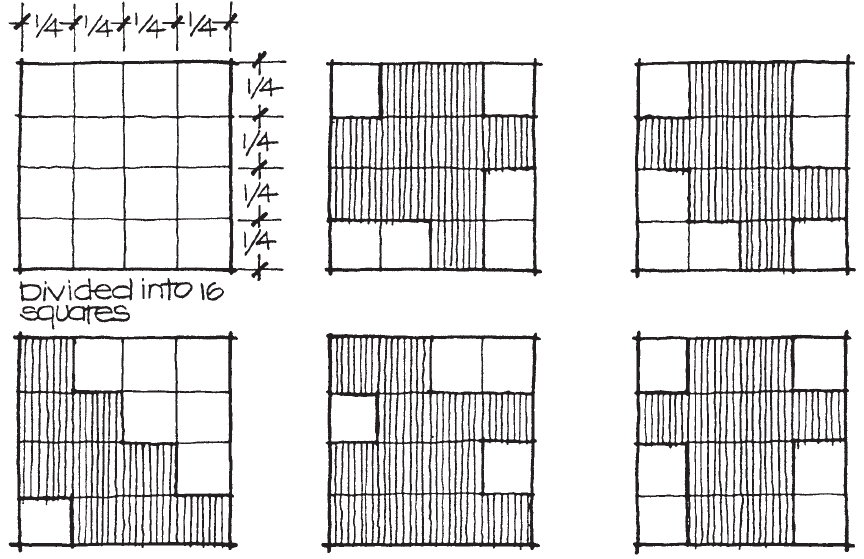 1/4 1/4 1/4 1/4
1/4
1/4
1/4
1/4
Divided into 16
squares